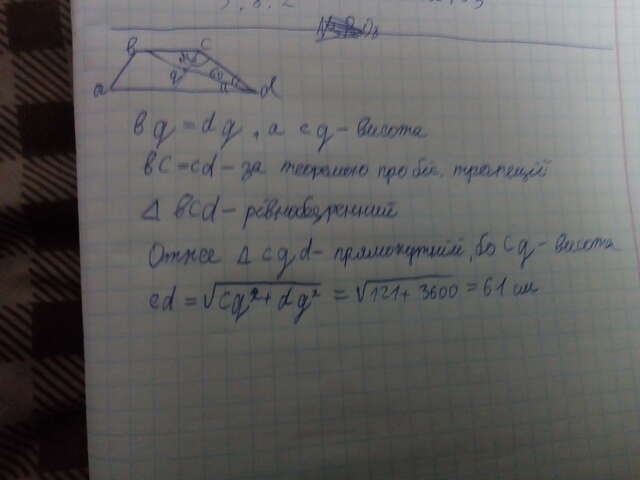 b c
a d
g
bg = dg, а cg - висота
bc = cd - за теоремою про біс. трапеції
Δ bcd - рівнобедренний
Отже Δ cgd - прямокутний, бо cg - висота
cd = √cg² + dg² = √121 + 3600 = 61 см